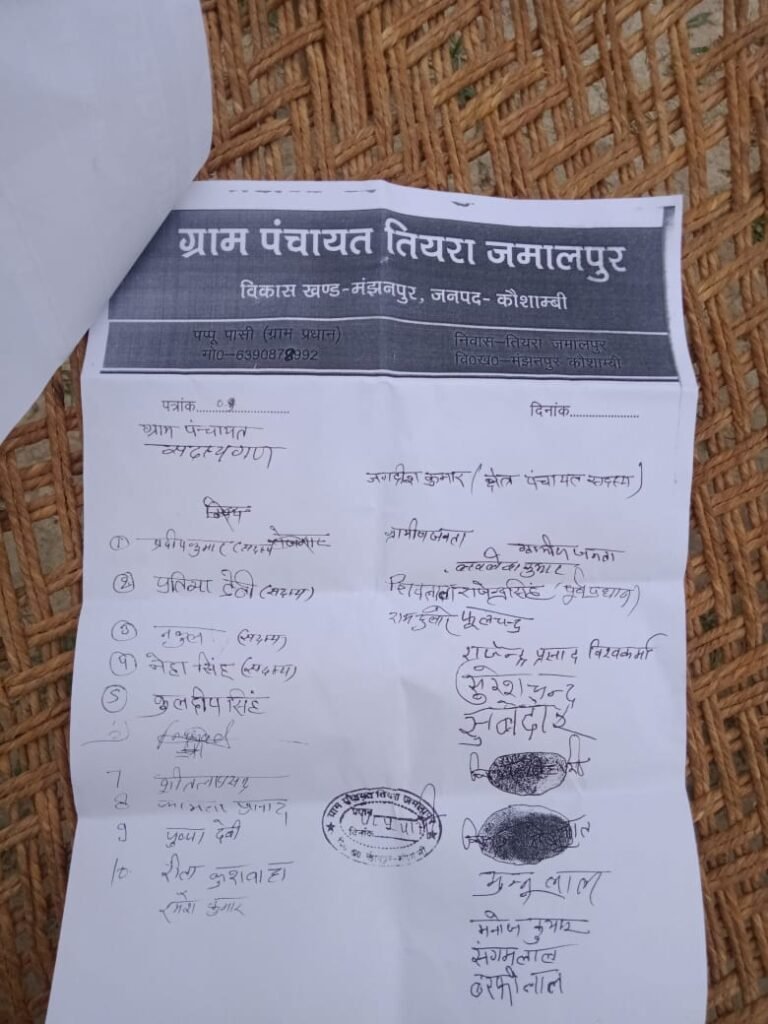 ग्राम पंचायत तियरा जमालपुर
विकास खण्ड-मंझनपुर, जनपद- कौशाम्बी
पप्पू पासी (ग्राम प्रधान)
मो0-6390878992
निवास-तियरा जमालपुर
वि0ख0-मंझनपुर कौशाम्बी
पत्रांक
दिनांक
ग्राम पंन्चायत
सदस्यगण
जगदीश कुमार (क्षेत्र पंचायत सदस्य)
① प्रदीप कुमार (सदस्य
② प्रतिमा देवी (सदस्य)
③ नकुल (सदस्य)
④ नेहा सिंह (सदस्य)
⑤ कुलदीप सिंह
7
8
9 पुष्पा देवी
10 रीता कुशवाहा
रमेश कुमार
ग्रामीण जनता
ग्रामीण जनता
शिवलाल राजेन्द्र सिंह (पूर्व प्रधान)
फूलचन्द्र
राजेन्द्र प्रसाद विश्वकर्मा
सुरेश चन्द्र
सुबेदार
ग्राम पंचायत तियरा जमालपुर
प्रधान
दिनांक
मुन्नू लाल
मनोज कुमार
संगमलाल